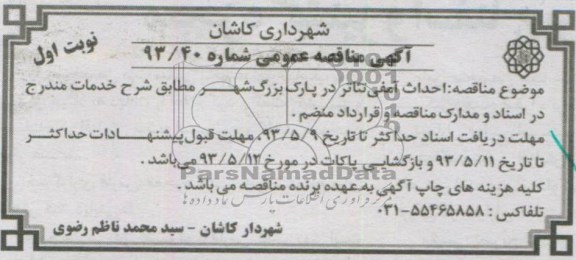 شهرداری کاشان
نوبت اول
آگهی مناقصه عمومی شماره ۹۳/۴۰
موضوع مناقصه: احداث آمفی تئاتر در پارک بزرگ شهر مطابق شرح خدمات مندرج
در اسناد و مدارک مناقصه و قرارداد منضم.
مهلت دریافت اسناد حداکثر تا تاریخ ۹۳/۵/۹، مهلت قبول پیشنهادات حداکثر
تا تاریخ ۹۳/۵/۱۱ و بازگشایی پاکات در مورخ ۹۳/۵/۱۲ می‌باشد.
ParsNamadData
کلیه هزینه های چاپ آگهی به عهده برنده مناقصه می باشد.
تلفاکس: ۵۵۴۶۵۸۵۸-۰۳۱
شهردار کاشان - سید محمد ناظم رضوی